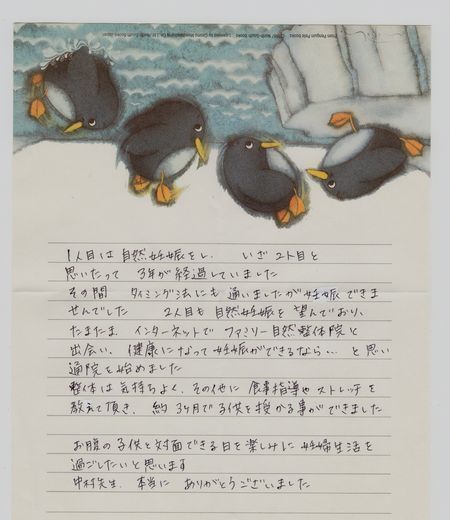 1人目は自然妊娠をし、 いざ2人目と
思いたって 3年が経過していました
その間 タイミング法にも通いましたが妊娠できま
せんでした 2人目も自然妊娠を望んでおり、
たまたま インターネットで ファミリー自然整体院と
出会い、健康になって妊娠ができるなら… と思い
通院を始めました
整体は気持ちよく、その他に食事指導やストレッチを
教えて頂き、約3ヶ月で子供を授かる事ができました
お腹の子供と対面できる日を楽しみに妊婦生活を
過ごしたいと思います
中村先生、本当に ありがとうございました